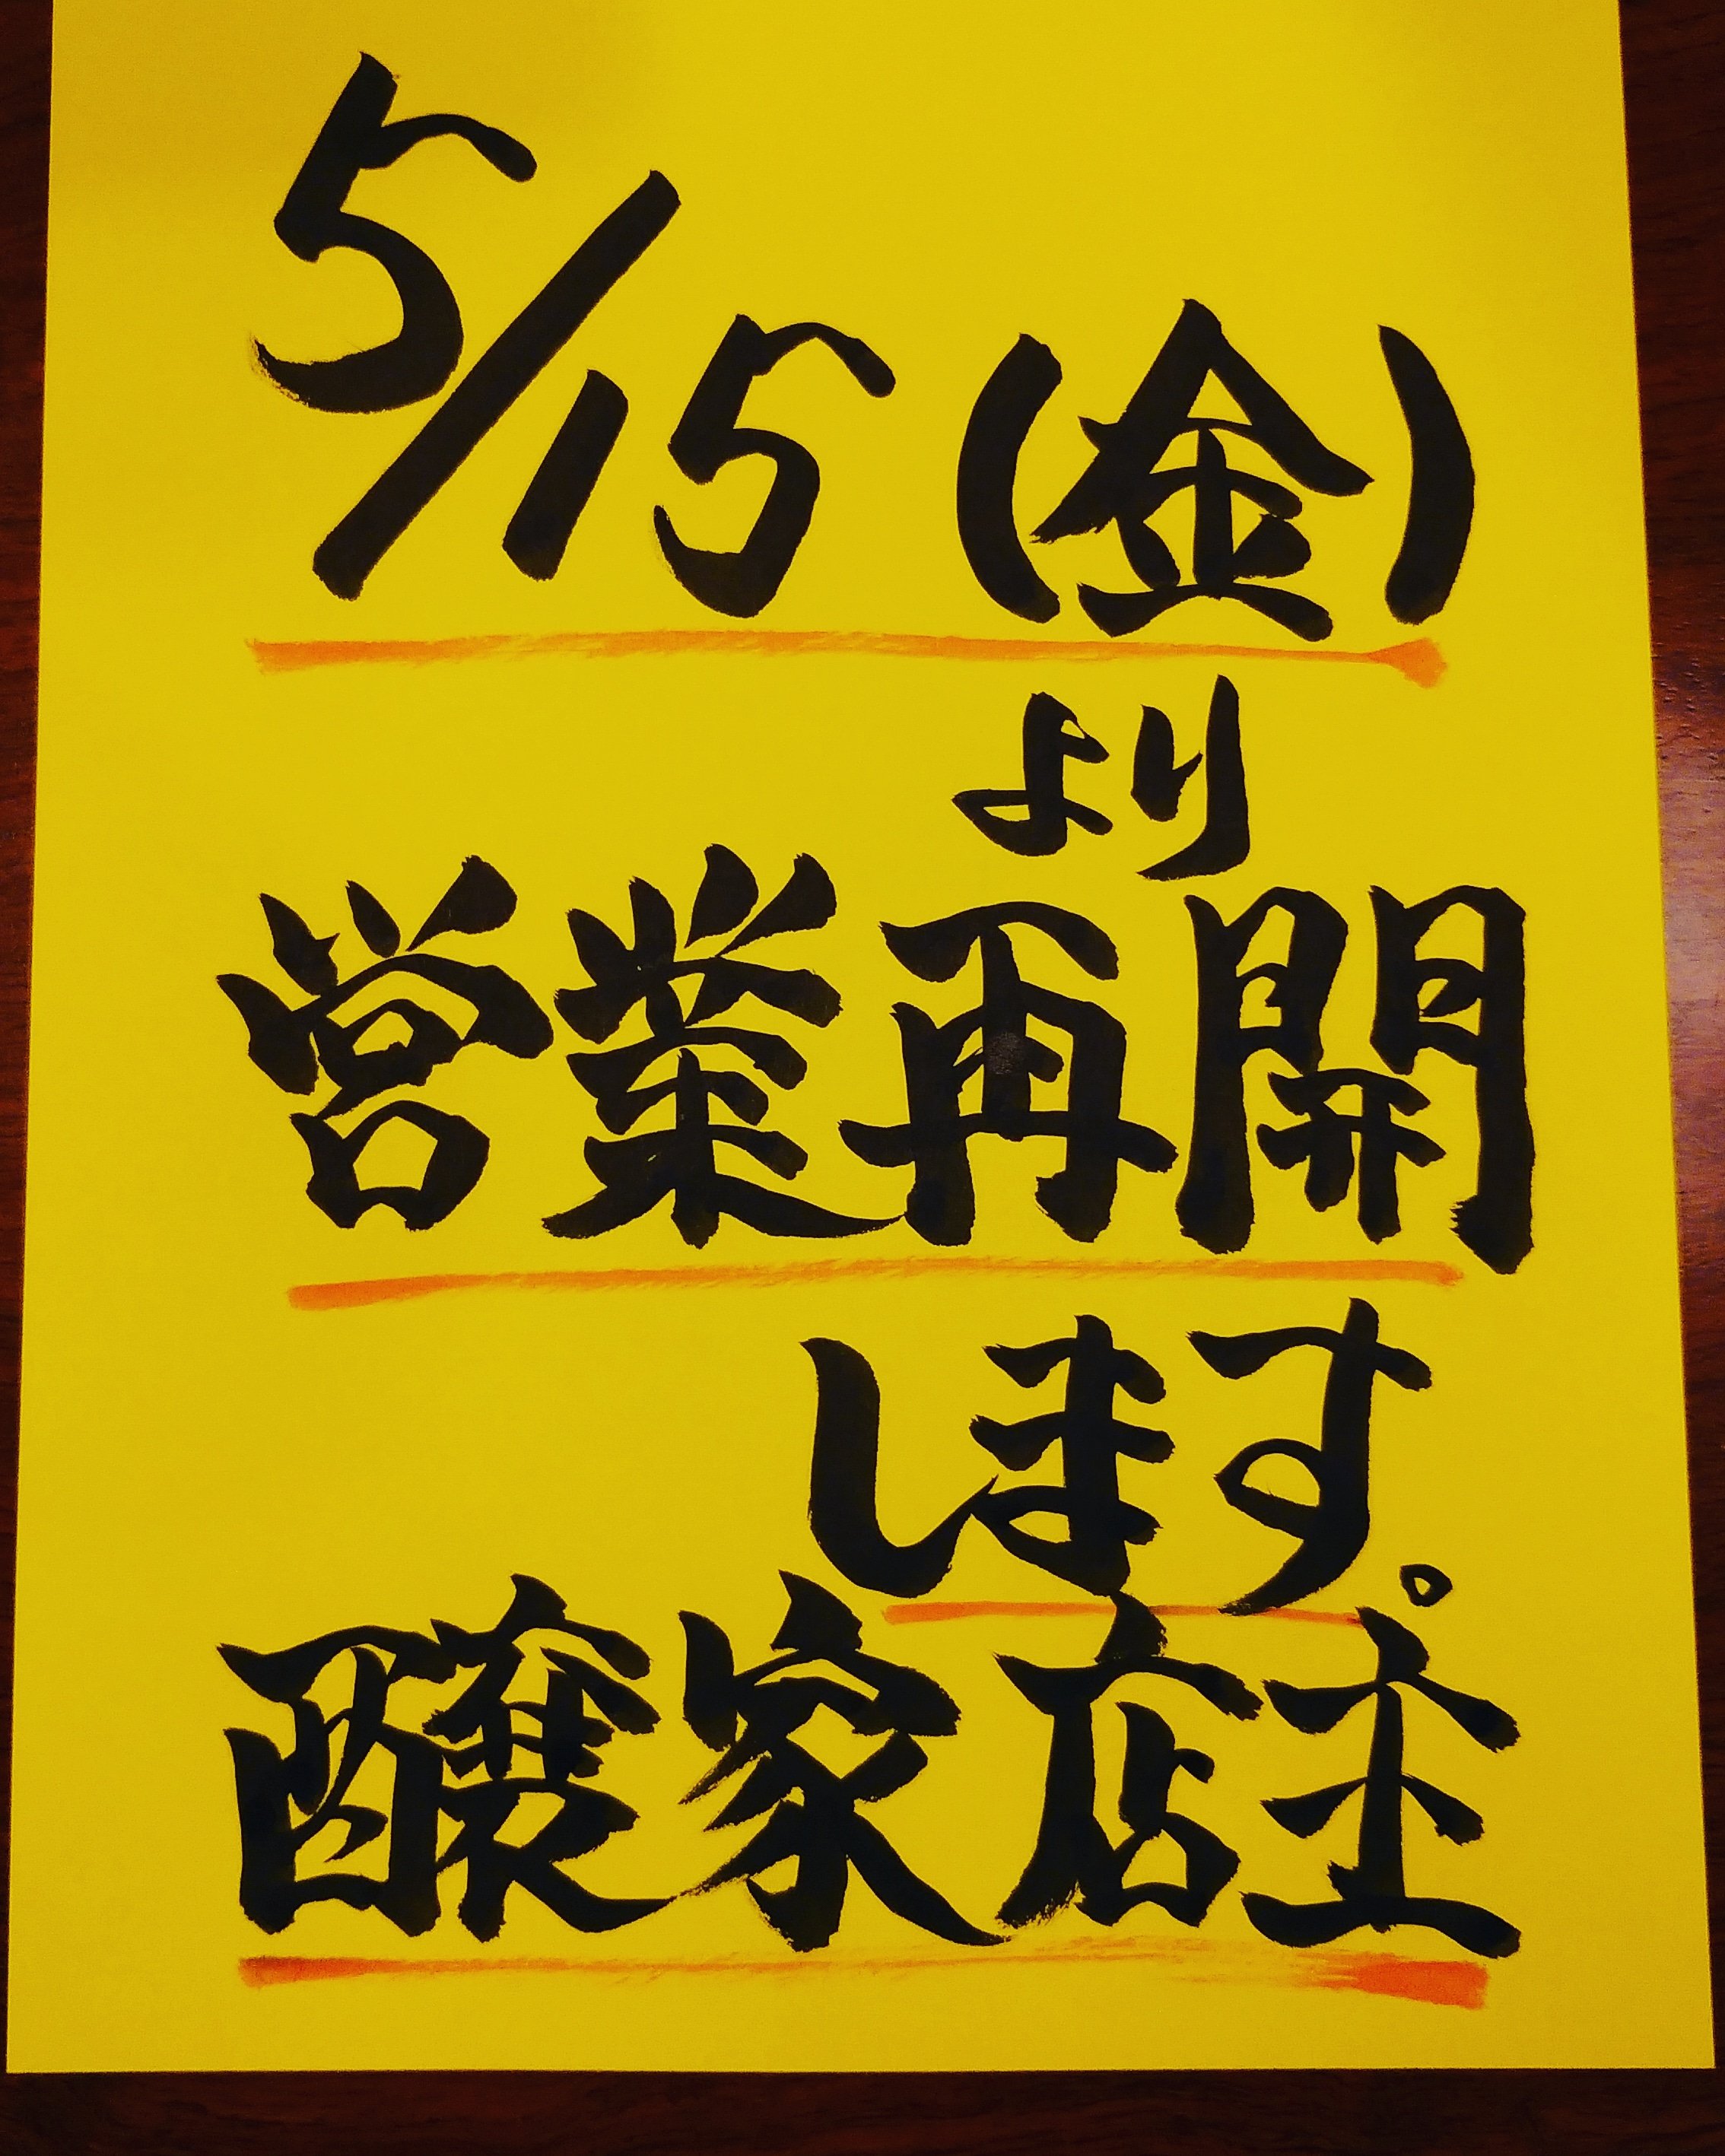 5/15(金)
より
営業再開
します。
醸家店主